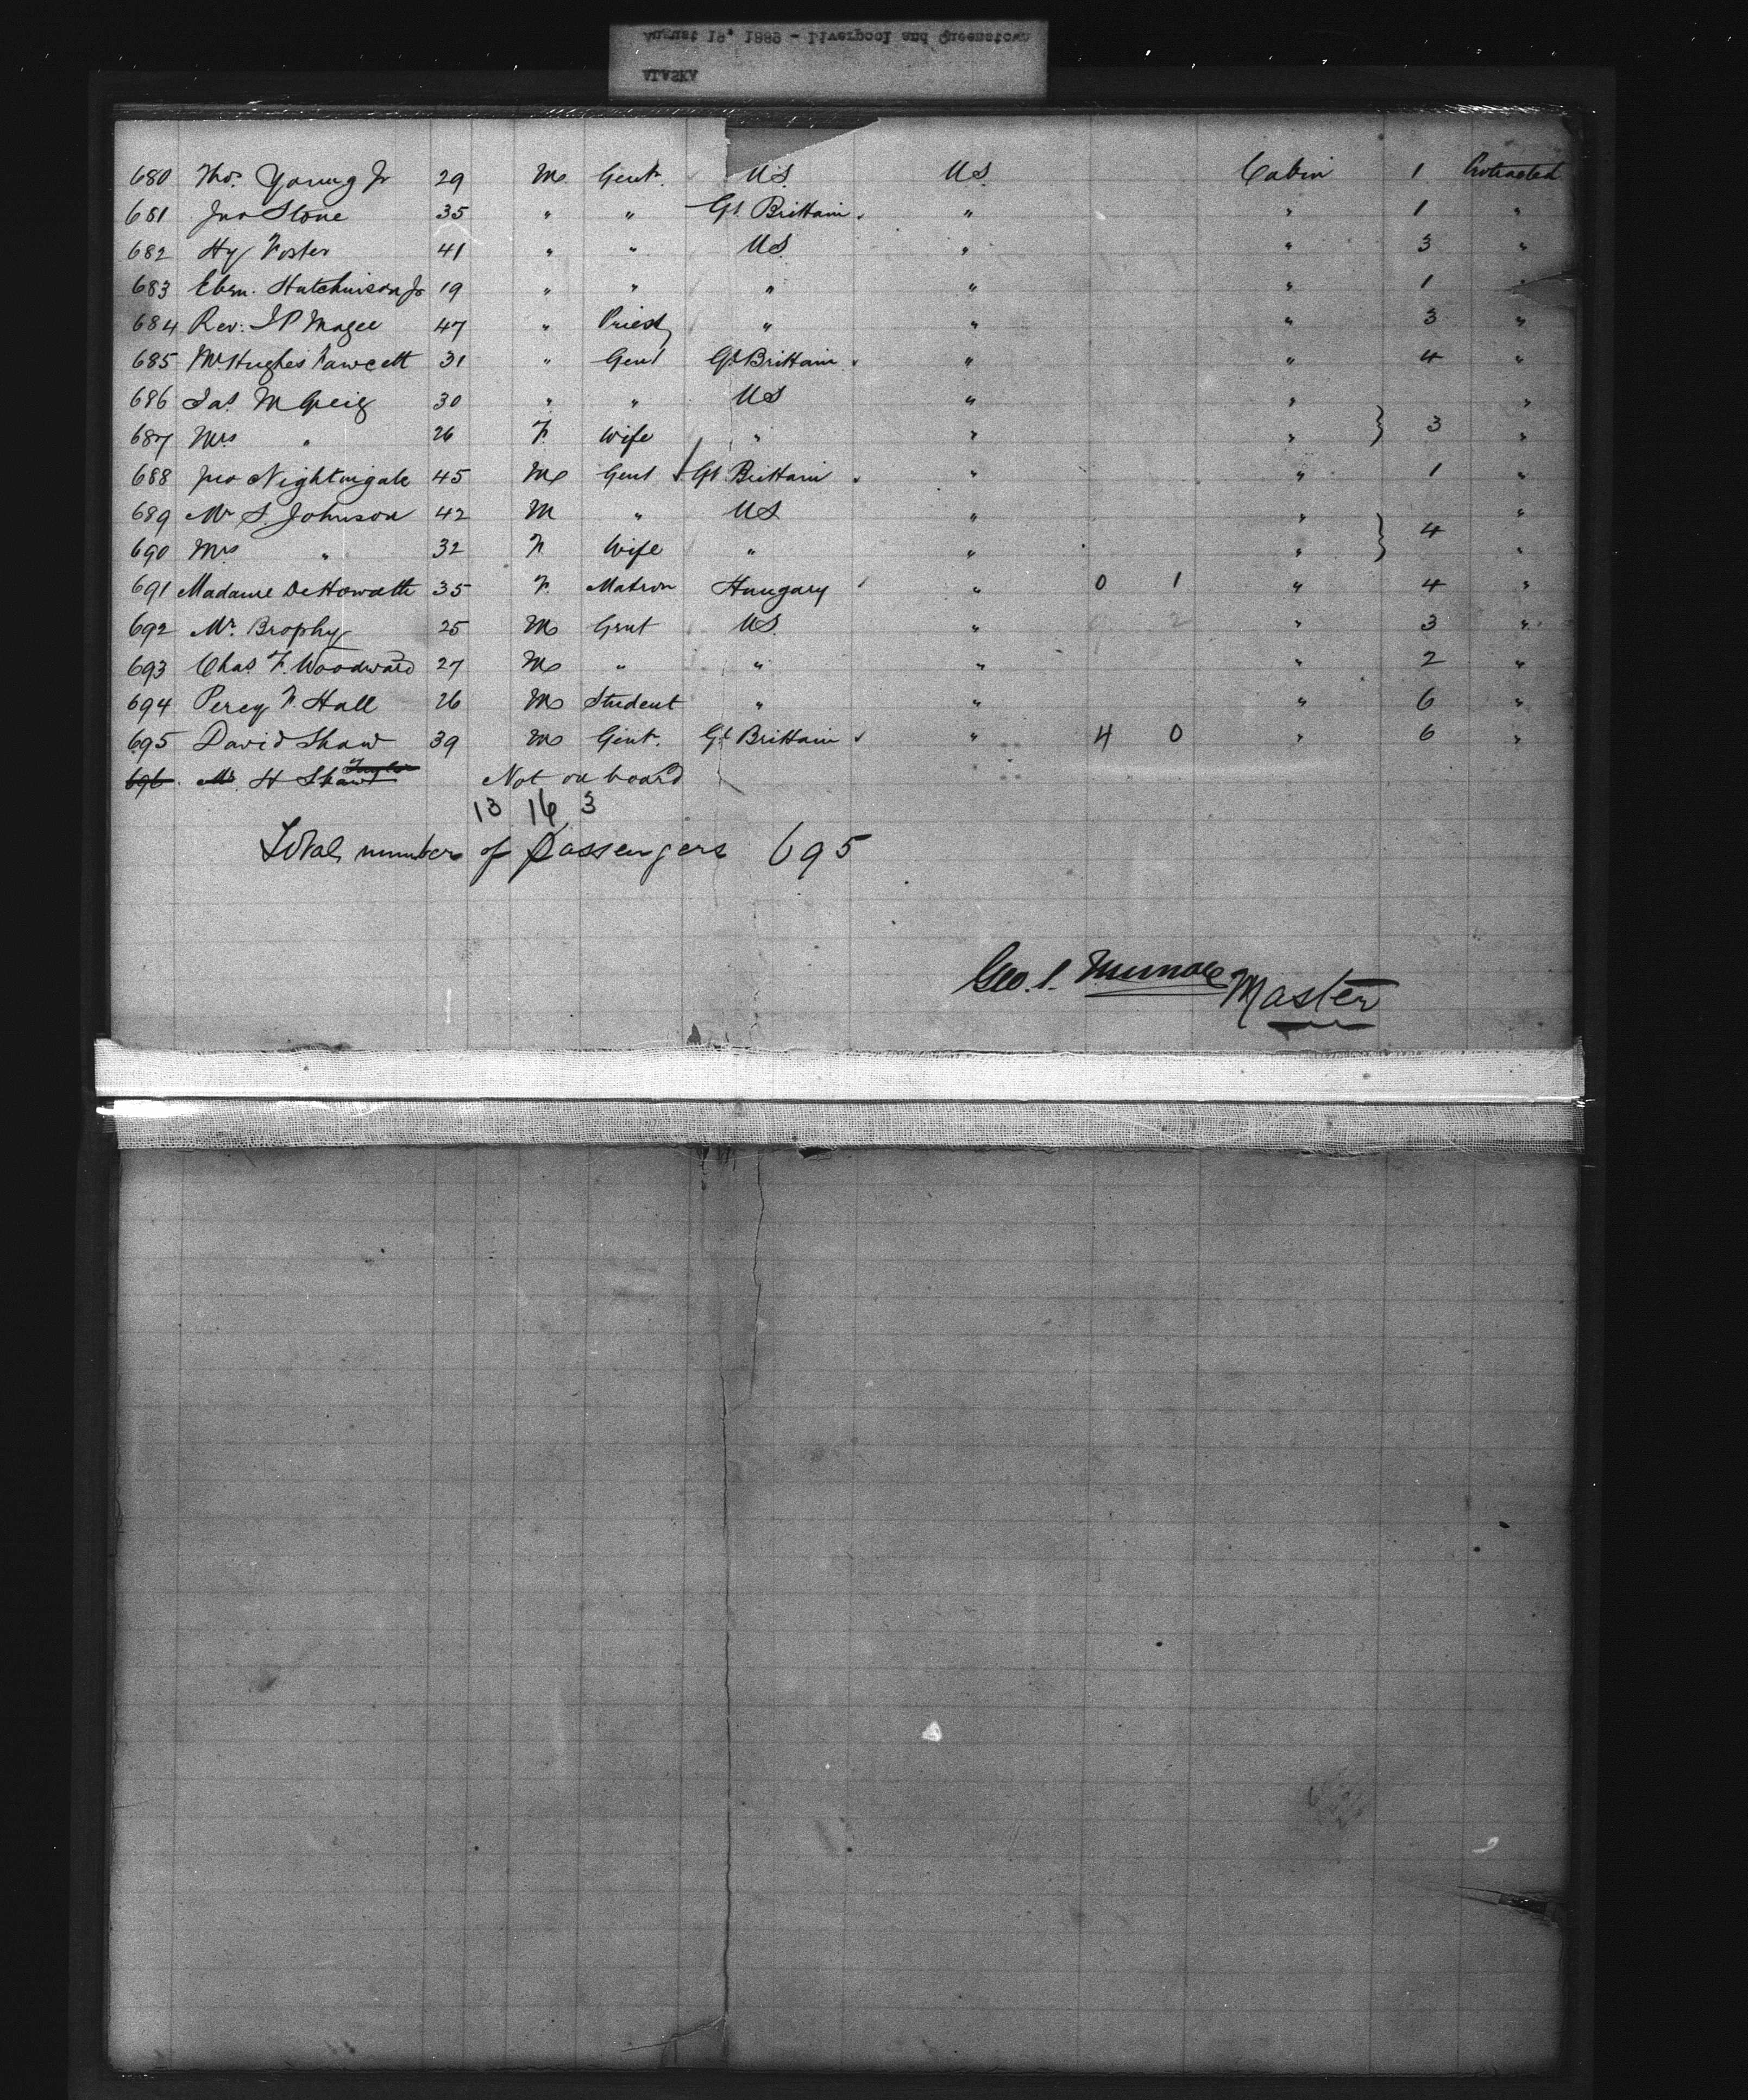 ALASKA
August 19, 1889 - Liverpool and Queenstown
680 Thos. Young Jr 29 M Gent. U.S. U.S. Cabin 1 Protracted
681 Jno Stone 35 " " Gt. Brittain " " 1 "
682 Hy Foster 41 " " U.S. " " 3 "
683 Eben. Hutchinson Jr 19 " " " " " 1 "
684 Rev: J P Magee 47 " Priest " " " 3 "
685 Mr Hughes Fawcett 31 " Gent Gt Brittain " " 4 "
686 Jas. M Greig 30 " " US " " "
687 Mrs " 26 F. Wife " " " } 3 "
688 Jno Nightingale 45 M Gent Gt. Brittain " " 1 "
689 Mr S. Johnson 42 M " US " " "
690 Mrs " 32 F Wife " " " } 4 "
691 Madame De Howath 35 F. Matron Hungary " 0 1 " 4 "
692 Mr. Brophy 25 M Gent US. " 2 " 3 "
693 Chas F. Woodward 27 M " " " " 2 "
694 Percy F. Hall 26 M Student " " " 6 "
695 David Shaw 39 M Gent. Gt Brittain " 4 0 " 6 "
696 Mr H Shaw Taylor Not on board
13 16 3
Total number of passengers 695
Geo. S. Munroe Master